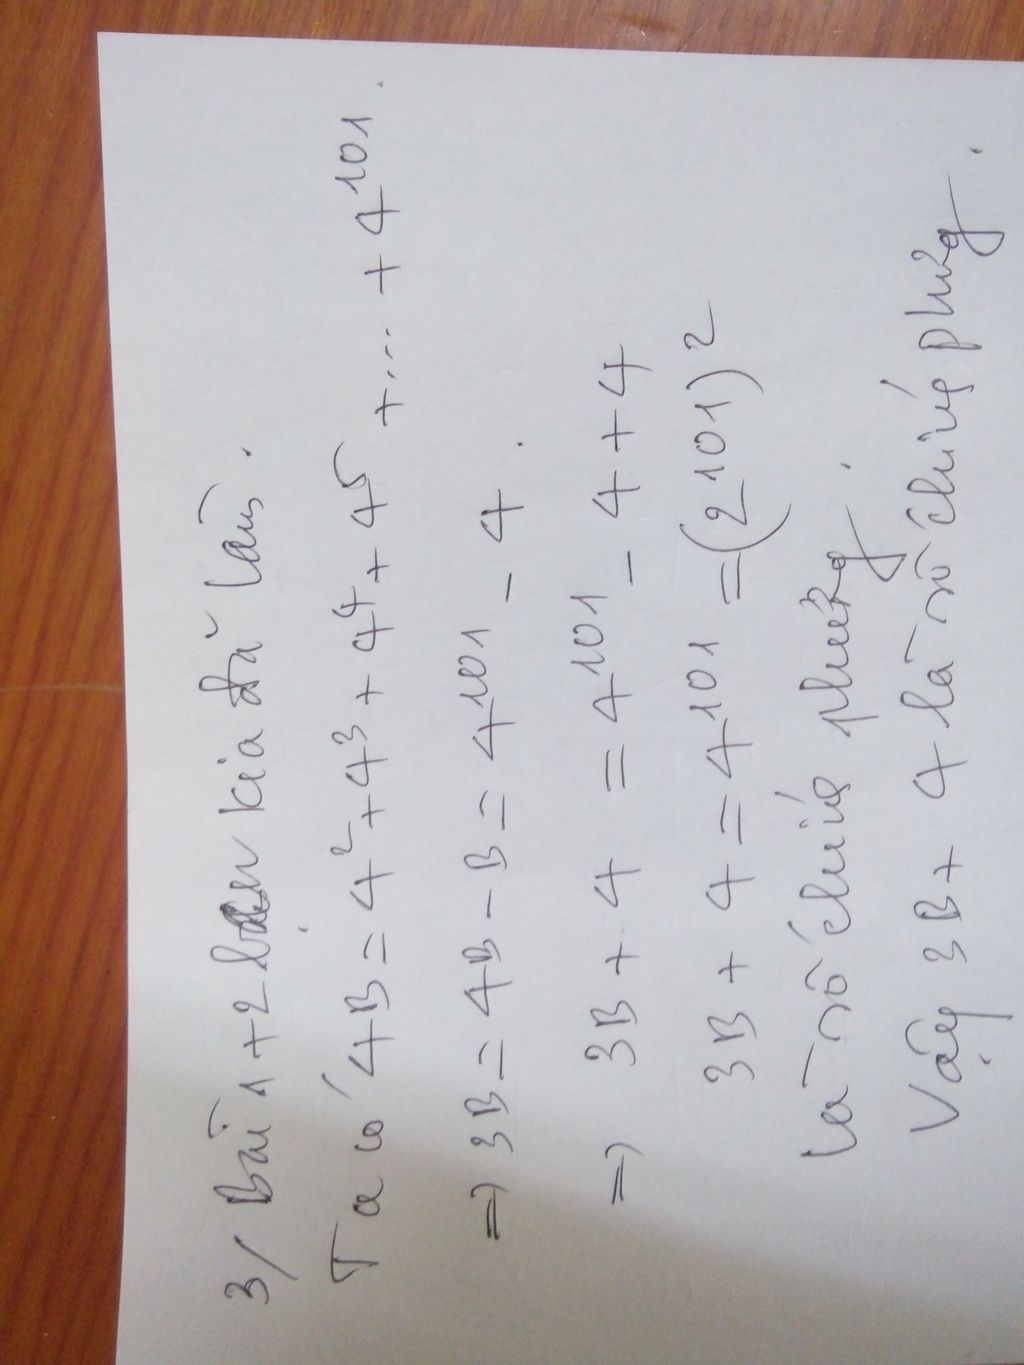 3/ Bài 1+2 bạn kia đã làm.
Ta có 4B = 4² + 4³ + 4⁴ + 4⁵ + ... + 4¹⁰¹.
=> 3B = 4B - B = 4¹⁰¹ - 4.
=> 3B + 4 = 4¹⁰¹ - 4 + 4
3B + 4 = 4¹⁰¹ = (2¹⁰¹)²
là số chính phương.
Vậy 3B + 4 là số chính phương.